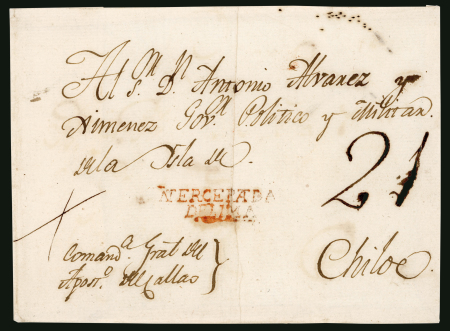 Al S.ᵒʳ D.ⁿ Antonio Alvarez y
Ximenez Gov.ᵒʳ Politico y Militar
de la Isla de
21
YERCEPADA
DE LIMA
Chiloe.
Comand.ᵃ Gral del
Apost.º del Callao